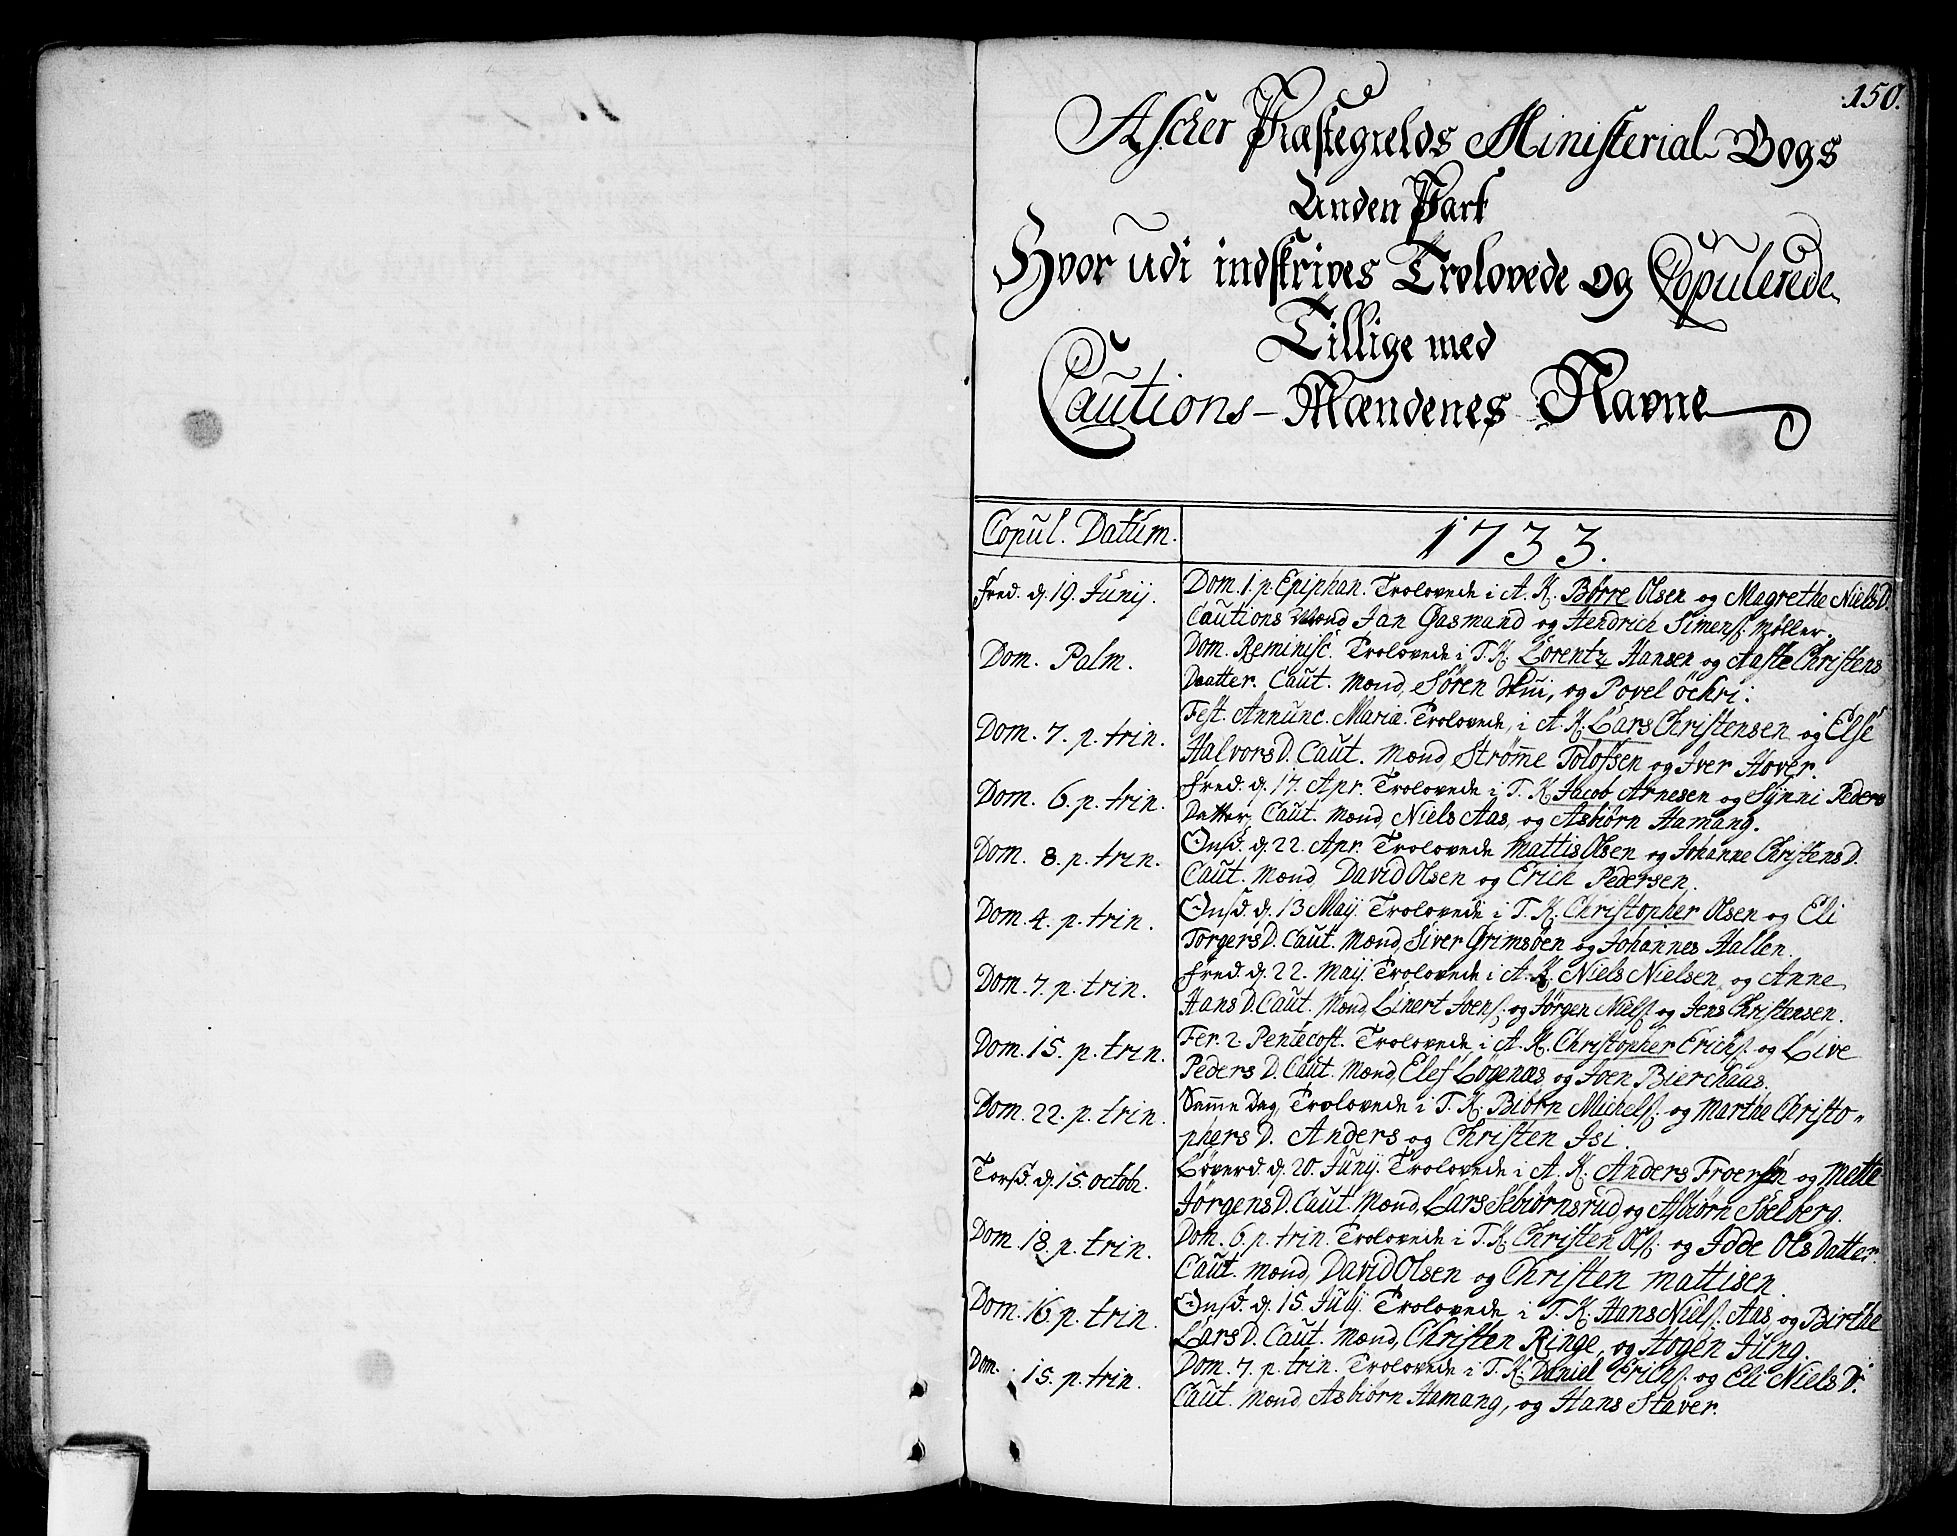 150.
Ascher Præstegields Ministerial Bogs
Anden Part
Hvor udi indskrives Trolovede og Copulerede
Tillige med
Cautions-Mændenes Navne
Copul. Datum.
1733.
Fred. d. 19. Junij.
Dom. 1. p. Epiphan. Trolovede i A. K. Börre Olsen og Magrethe Niels D.
Cautions Mænd Jan Gasmand og Hendrich Simens. Møller.
Dom. Palm.
Dom. Reminisc. Trolovede i T. K. Lorentz Hansen og Aaste Christens
Daatter. Caut. Mænd, Sören Hui, og Povel öchri:
Dom. 7. p. trin.
Fest. Annunc. Mariæ. Trolovede, i A. K. Lars Christensen og Else
Halvors D. Caut. Mænd, Strømme Tolofsen og Iver Hover.
Dom. 6. p. trin.
Fred. d. 17. Apr. Trolovede i T. K. Jacob Arnesen og Synni Peders
Datter, Caut. Mænd, Niels Aas, og Asbiörn Hamang.
Dom. 8. p. trin.
Onsd. d. 22. Apr. Trolovede Mattis Olsen og Johanne Christens D.
Caut. Mænd, David Olsen og Erich Pedersen.
Dom. 4. p. trin.
Onsd. d. 13 Maij. Trolovede i T. K. Christopher Olsen og Eli
Torgers D. Caut. Mænd, Siver Grimsöen og Johannes Hallen.
Dom. 7. p. trin.
Fred. d. 22. Maij. Trolovede i A. K. Niels Nielsen, og Anne
Hans D. Caut. Mænd, Linert Joens. og Jörgen Niels. og Jens Christensen.
Dom. 15. p. trin.
Fer. 2. Pentecost. Trolovede i A. K. Christopher Erichs. og Live
Peders D. Caut. Mænd, Elef Lögenæs og Joen Bierchaas.
Dom. 22. p. trin.
Samme Dag, Trolovede i T. K. Biörn Michels. og Marthe Christo-
phers D. Anders og Christen Isi.
Torsd. d. 15. octobr.
Löverd. d. 20. Junij. Trolovede i A. K. Anders Froersen og Mette
Jörgens D. Caut. Mænd, Lars Sebiörnsrud og Asbiörn Soelberg.
Dom. 18. p. trin.
Dom. 6. p. trin. Trolovede i T. K. Christen Ols. og Idde Ols Datter.
Caut. Mænd, David Olsen og Christen Mattisen.
Dom. 16. p. trin.
Onsd. d. 15. Julij. Trolovede i T. K. Hans Niels. Aas, og Birthe
Lars D. Caut. Mænd, Christen Ringe, og Hogen Jung.
Dom. 15. p. trin.
Dom. 7. p. trin. Trolovede i T. K. Daniel Erichs. og Eli Niels D.
Caut. Mænd, Asbiörn Hamang, og Hans Staver.